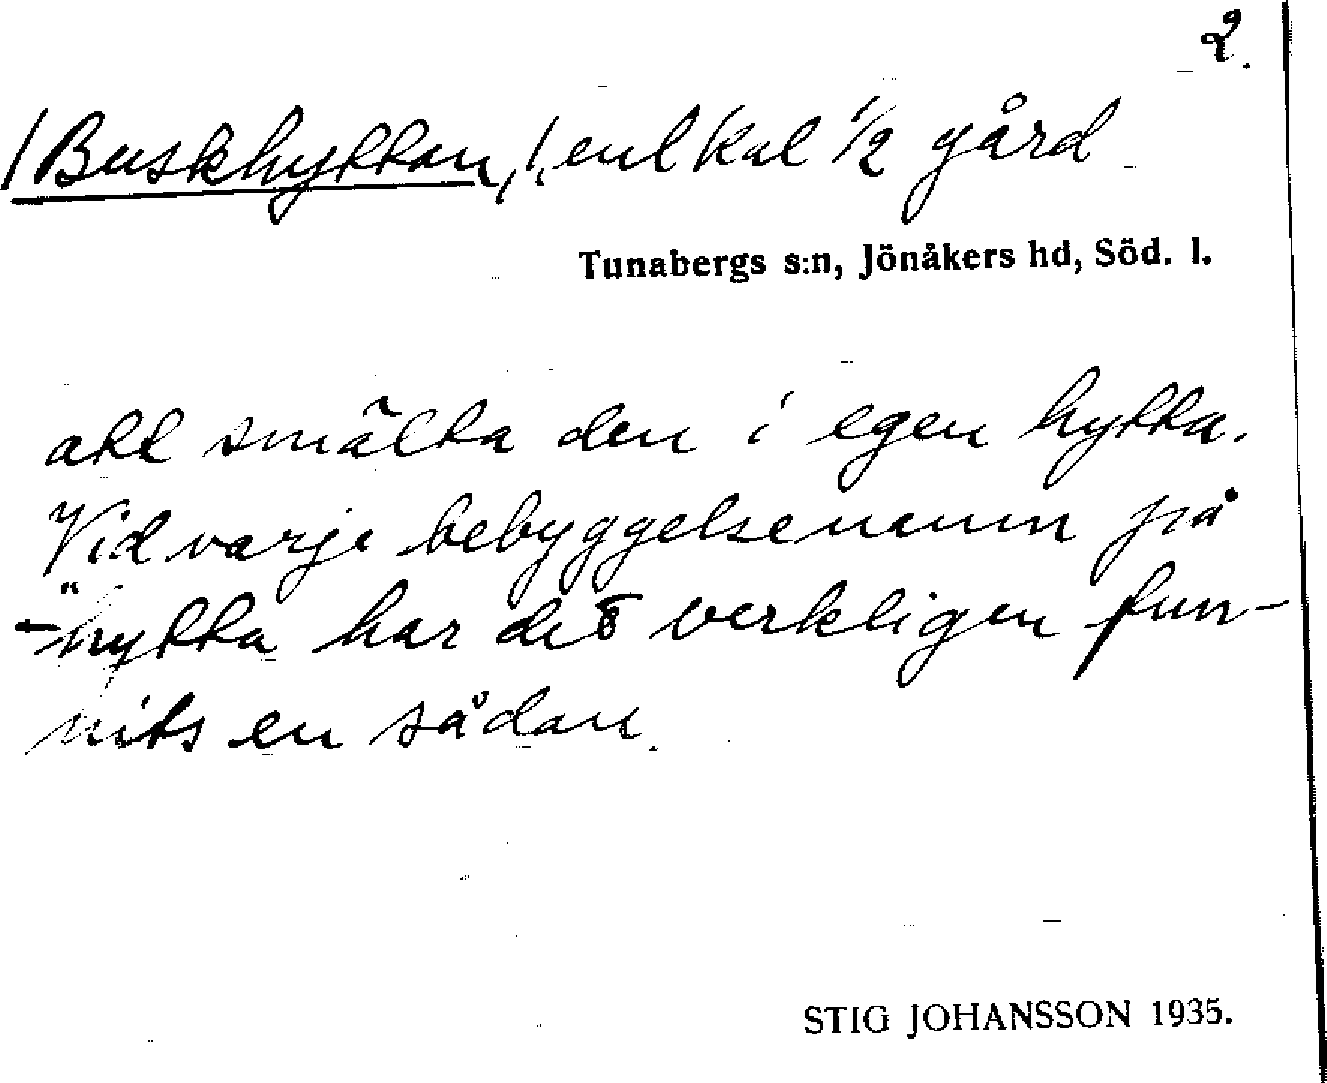 2.
/Buskhyttan,/, enl kal 1/2 gård
Tunabergs s:n, Jönåkers hd, Söd. l.
att smälta den i egen hytta.
Vid varje bebyggelsenamn på
-"hytta har det verkligen fun-
nits en sådan.
STIG JOHANSSON 1935.